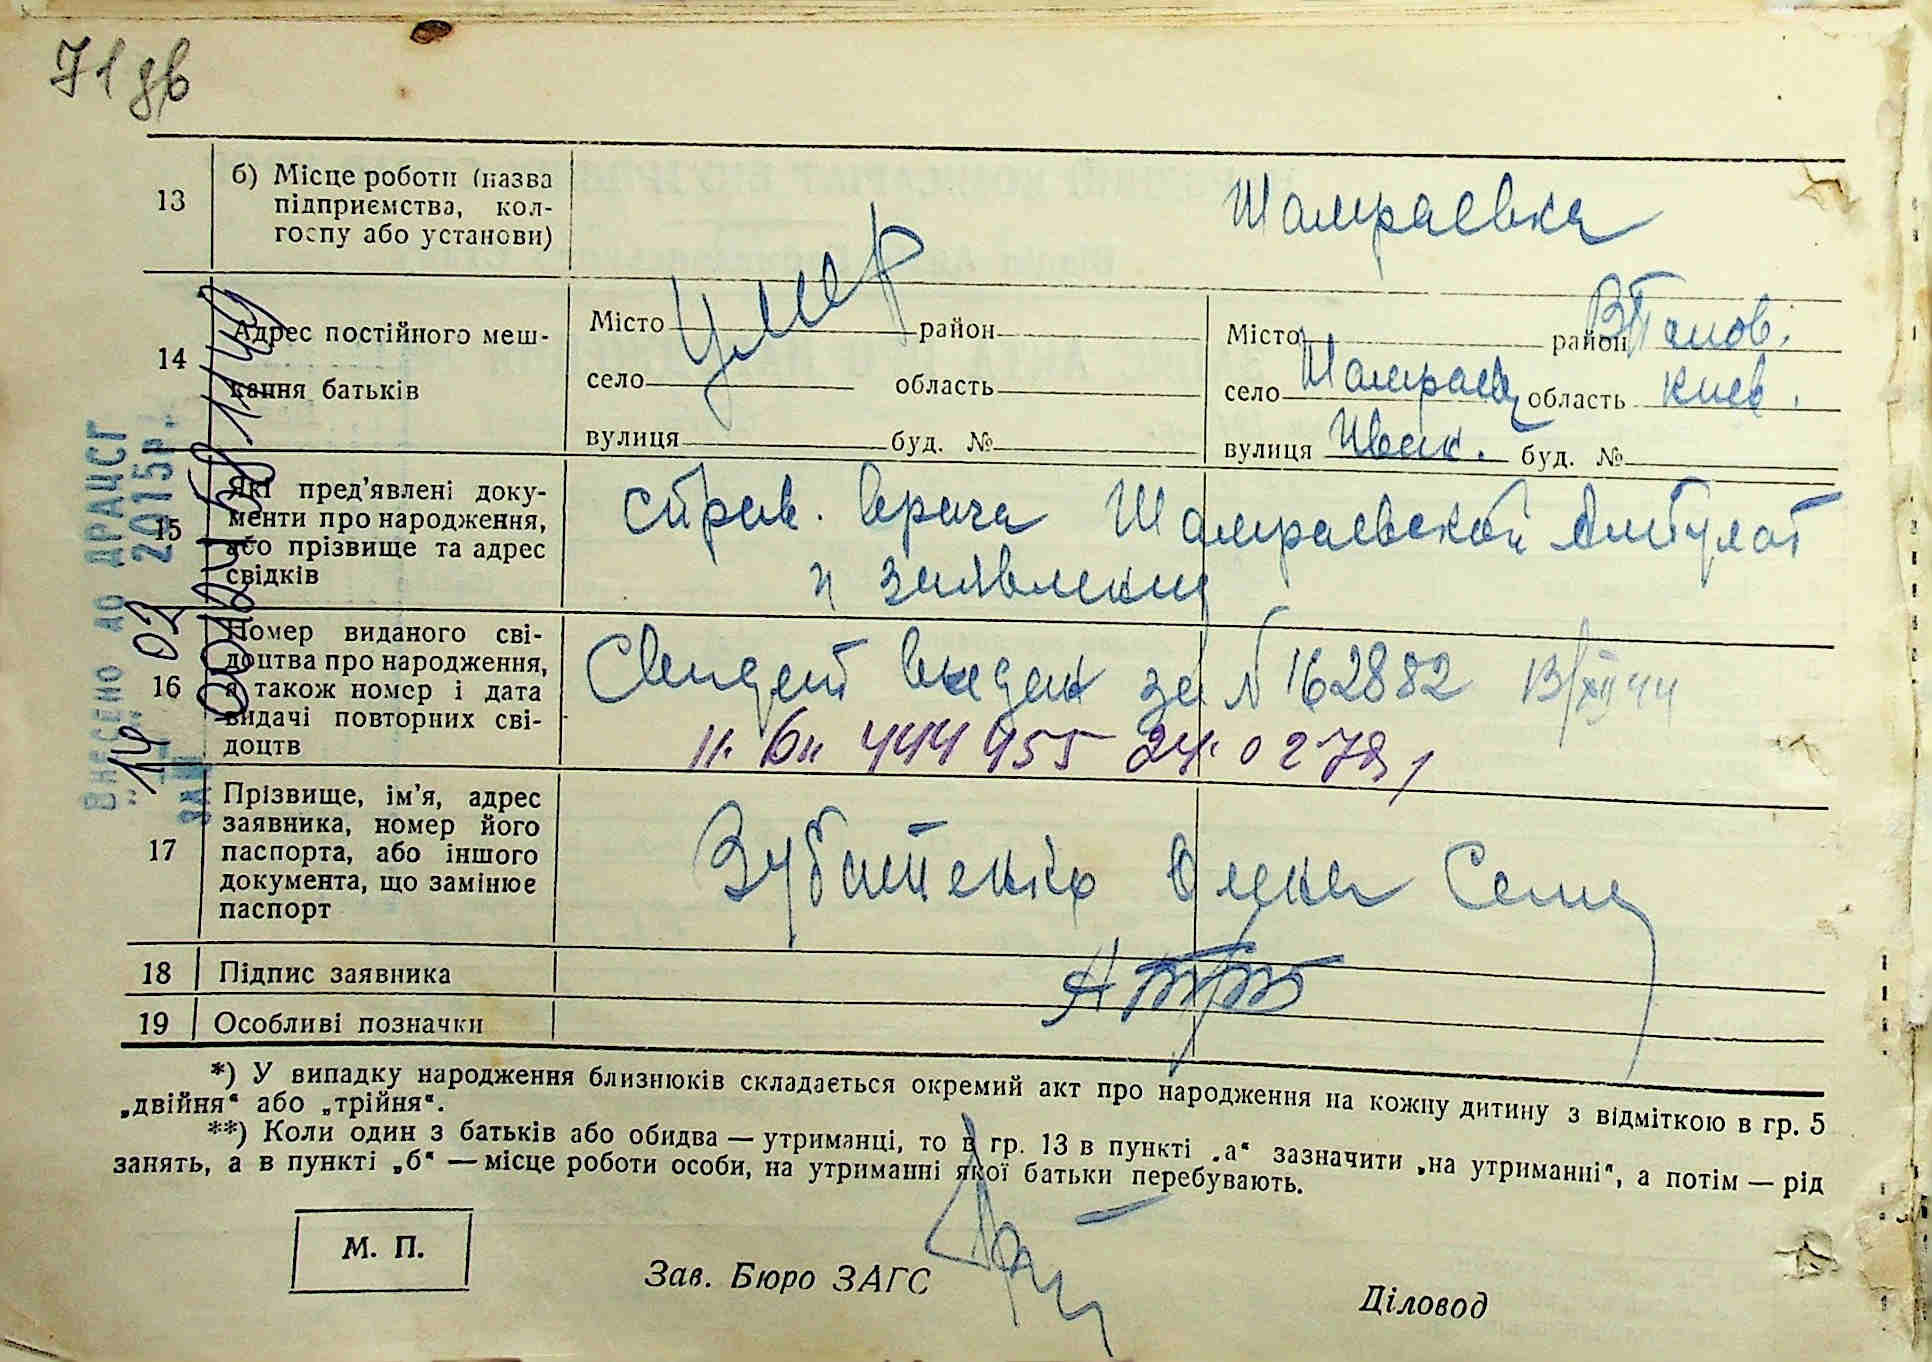 71 зв
13
б) Місце роботи (назва
підприємства, кол-
госпу або установи)
Шамраевка
умер
14
Адрес постійного меш-
кання батьків
Місто район
село область
вулиця буд. №
Місто район В Полов.
село Шамраев область Киев.
вулиця буд. №
15
Які пред'явлені доку-
менти про народження,
або прізвище та адрес
свідків
справ. врача Шамраевской Амбулат
и заявления
16
Номер виданого сві-
доцтва про народження,
а також номер і дата
видачі повторних сві-
доцтв
Свидет выдан за № 162882 13/XII 44
444 455 24. 02
17
Прізвище, ім'я, адрес
заявника, номер його
паспорта, або іншого
документа, що замінює
паспорт
Олена
18
Підпис заявника
19
Особливі позначки
Внесено до ДРАЦСГ
"14" 02 2015р.
за №
*) У випадку народження близнюків складається окремий акт про народження на кожну дитину з відміткою в гр. 5
„двійня“ або „трійня“.
**) Коли один з батьків або обидва — утриманці, то в гр. 13 в пункті „а“ зазначити „на утриманні“, а потім — рід
занять, а в пункті „б“ — місце роботи особи, на утриманні якої батьки перебувають.
М. П.
Зав. Бюро ЗАГС
Діловод